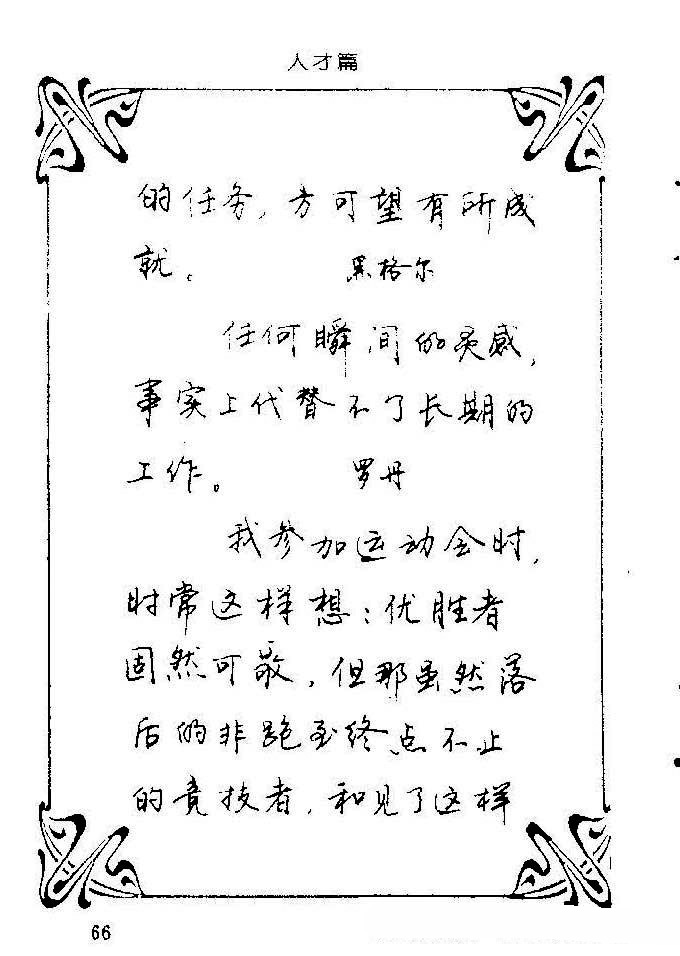 人才篇
的任务，方可望有所成
就。 黑格尔
任何瞬间的灵感，
事实上代替不了长期的
工作。 罗丹
我参加运动会时，
时常这样想：优胜者
固然可敬，但那虽然落
后的非跑至终点不止
的竞技者，和见了这样
66